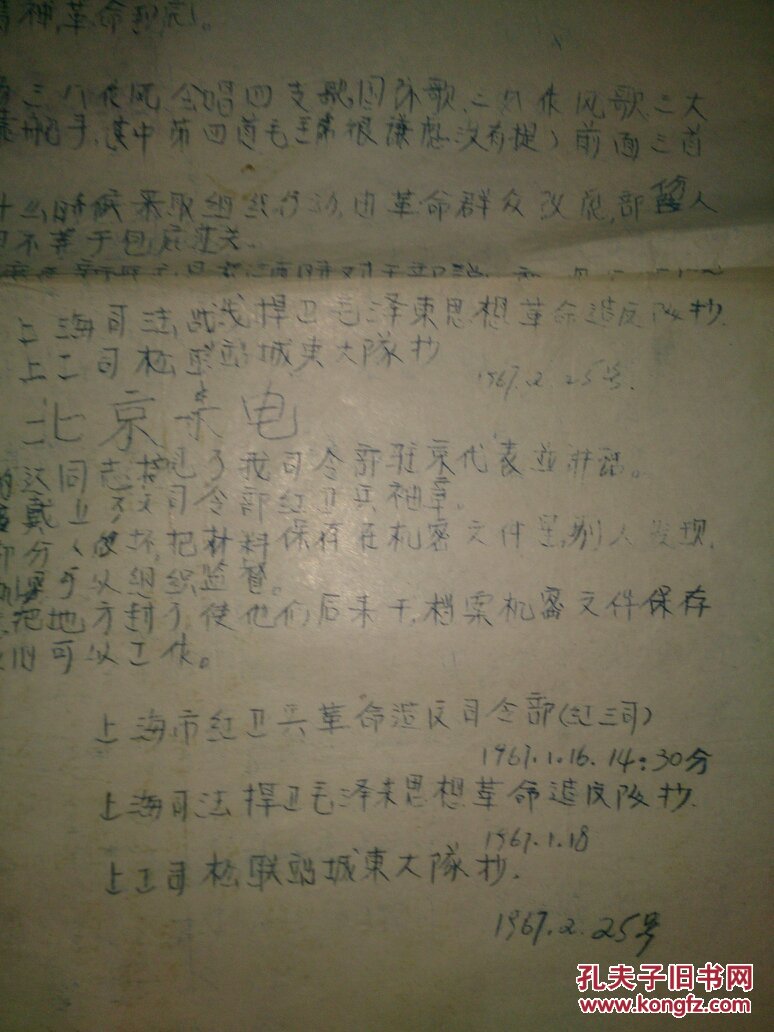 神,革命到底)。
三八作风,会唱四支歌(国际歌,三八作风歌,三大
其中第四首毛主席很谦虚没有提)前面三首
时候采取组织行动,由革命群众改选,部份人
不等于包庇
上海司法战线捍卫毛泽東思想革命造反队抄.
上工司松联站城東大隊抄
1967.2.25号.
北京来电
同志接见了我司令部驻京代表並讲話。
戴上了我司令部红卫兵袖章.
部分人破坏,把材料保存在机密文件里,别人发现,
可以组织监督。
把地方封了,使他们后来干,档案机密文件保存
可以工作。
上海市红卫兵革命造反司令部(红三司)
1967.1.16.14:30分
上海司法捍卫毛泽东思想革命造反队抄.
1967.1.18
上工司松联站城東大隊抄.
1967.2.25号
孔夫子旧书网
www.kongfz.com